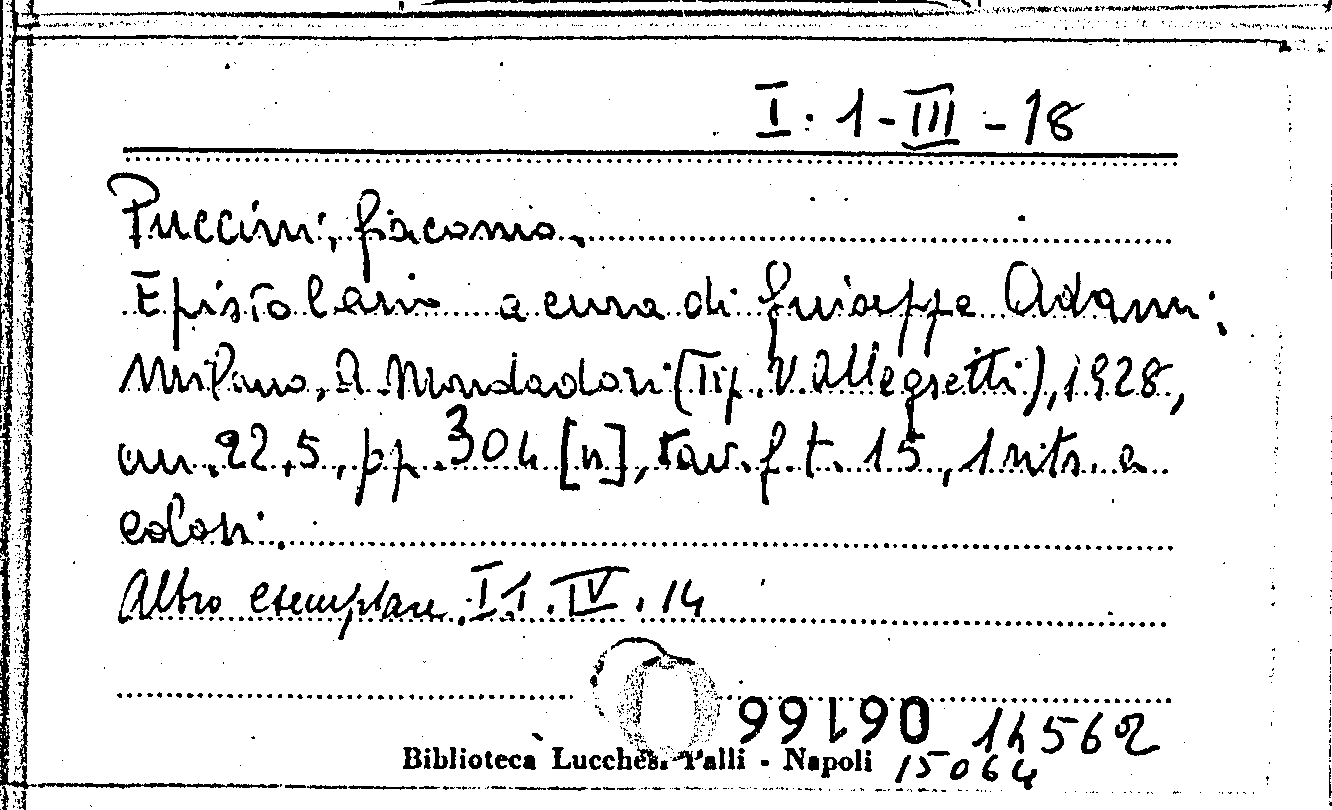 I. 1-III-18
Puccini, Giacomo.
Epistolario a cura di Giuseppe Adami;
Milano, A. Mondadori (Tip. V. Allegretti), 1928,
cm. 22,5, pp. 304 [n], tav. f. t. 15, 1 ritr. a
colori.
Altro esemplare. I.1.IV.14
061966 14562
Biblioteca Lucchesi Palli - Napoli 15064